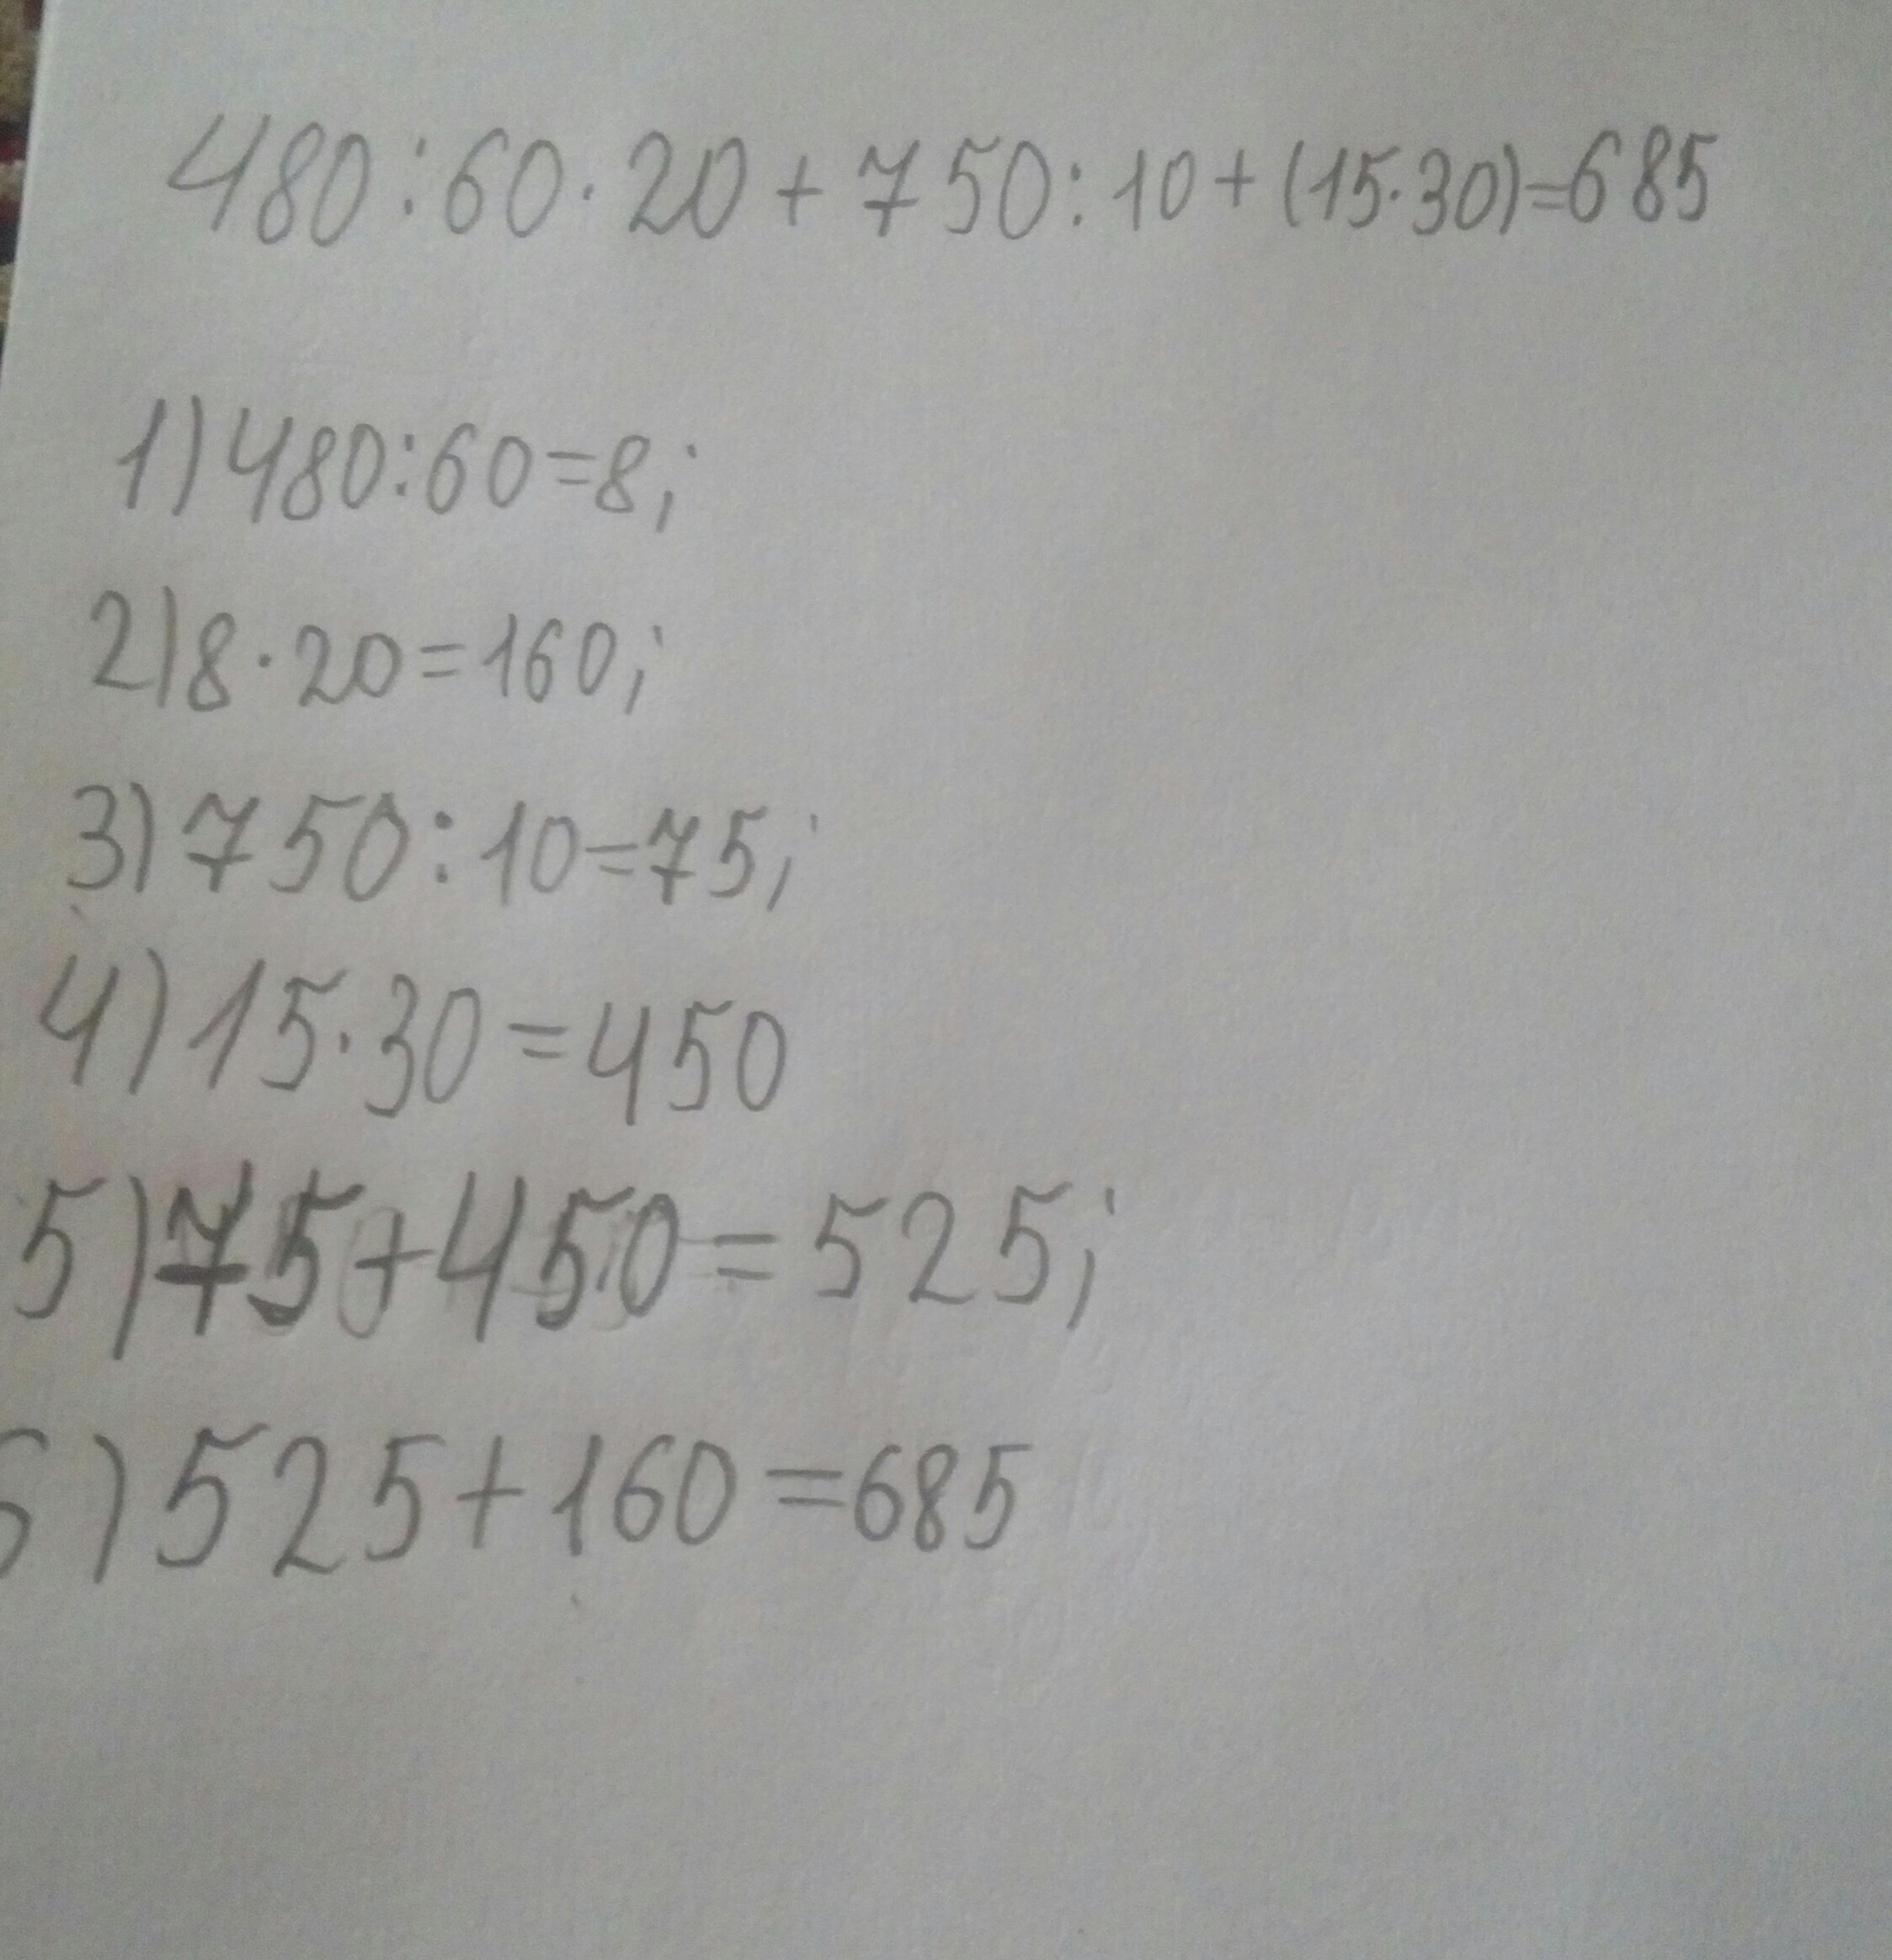 480:60·20+750:10+(15·30)=685
1)480:60=8;
2)8·20=160;
3)750:10=75;
4)15·30=450
5)75+450=525;
6)525+160=685